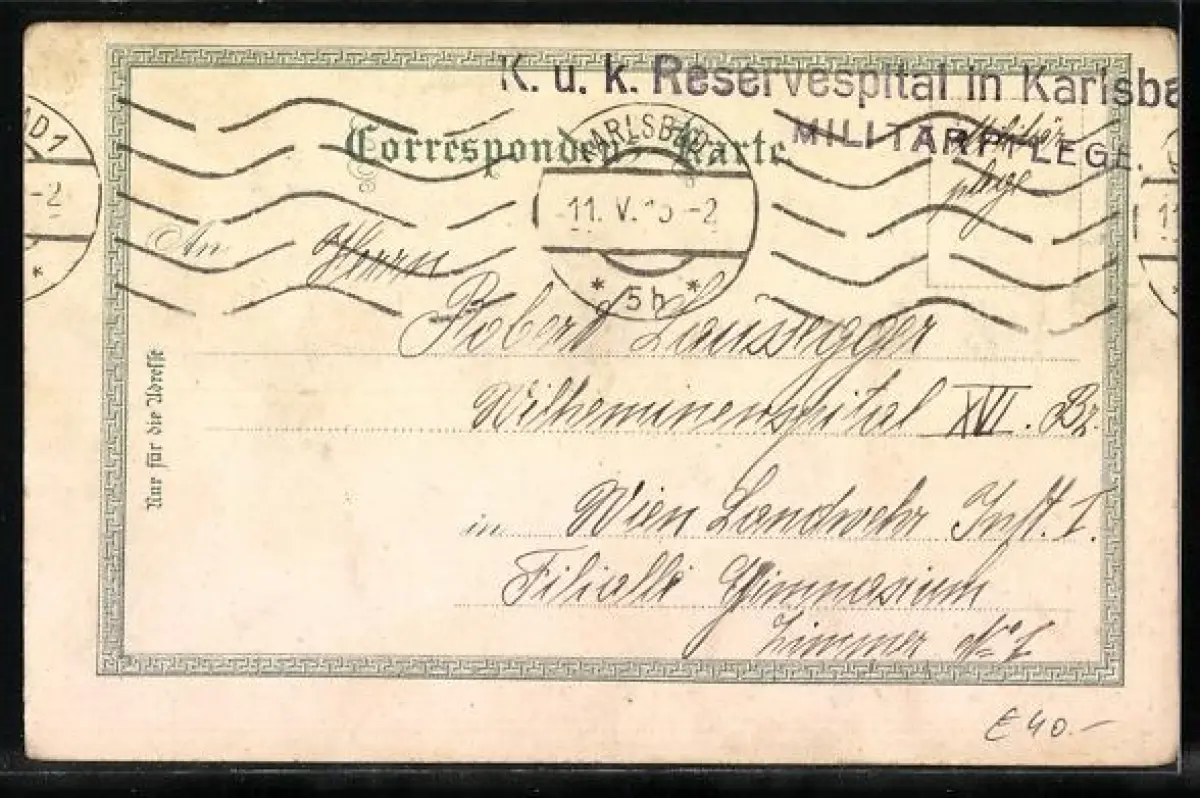 K. u. k. Reservespital in Karlsba
MILITÄRPFLEGE.
Correspondenz-Karte
Militär
pflege
KARLSBAD
AD 1
-2
*
11. V. 15 -2
* 5b *
11
An
Herrn
Robert Laussegger
Wilheminenspital XVI. Bz.
in Wien Landwehr Inft. I.
Filialle Gimnasium
Zimmer No
Nur für die Adresse
€ 40.-